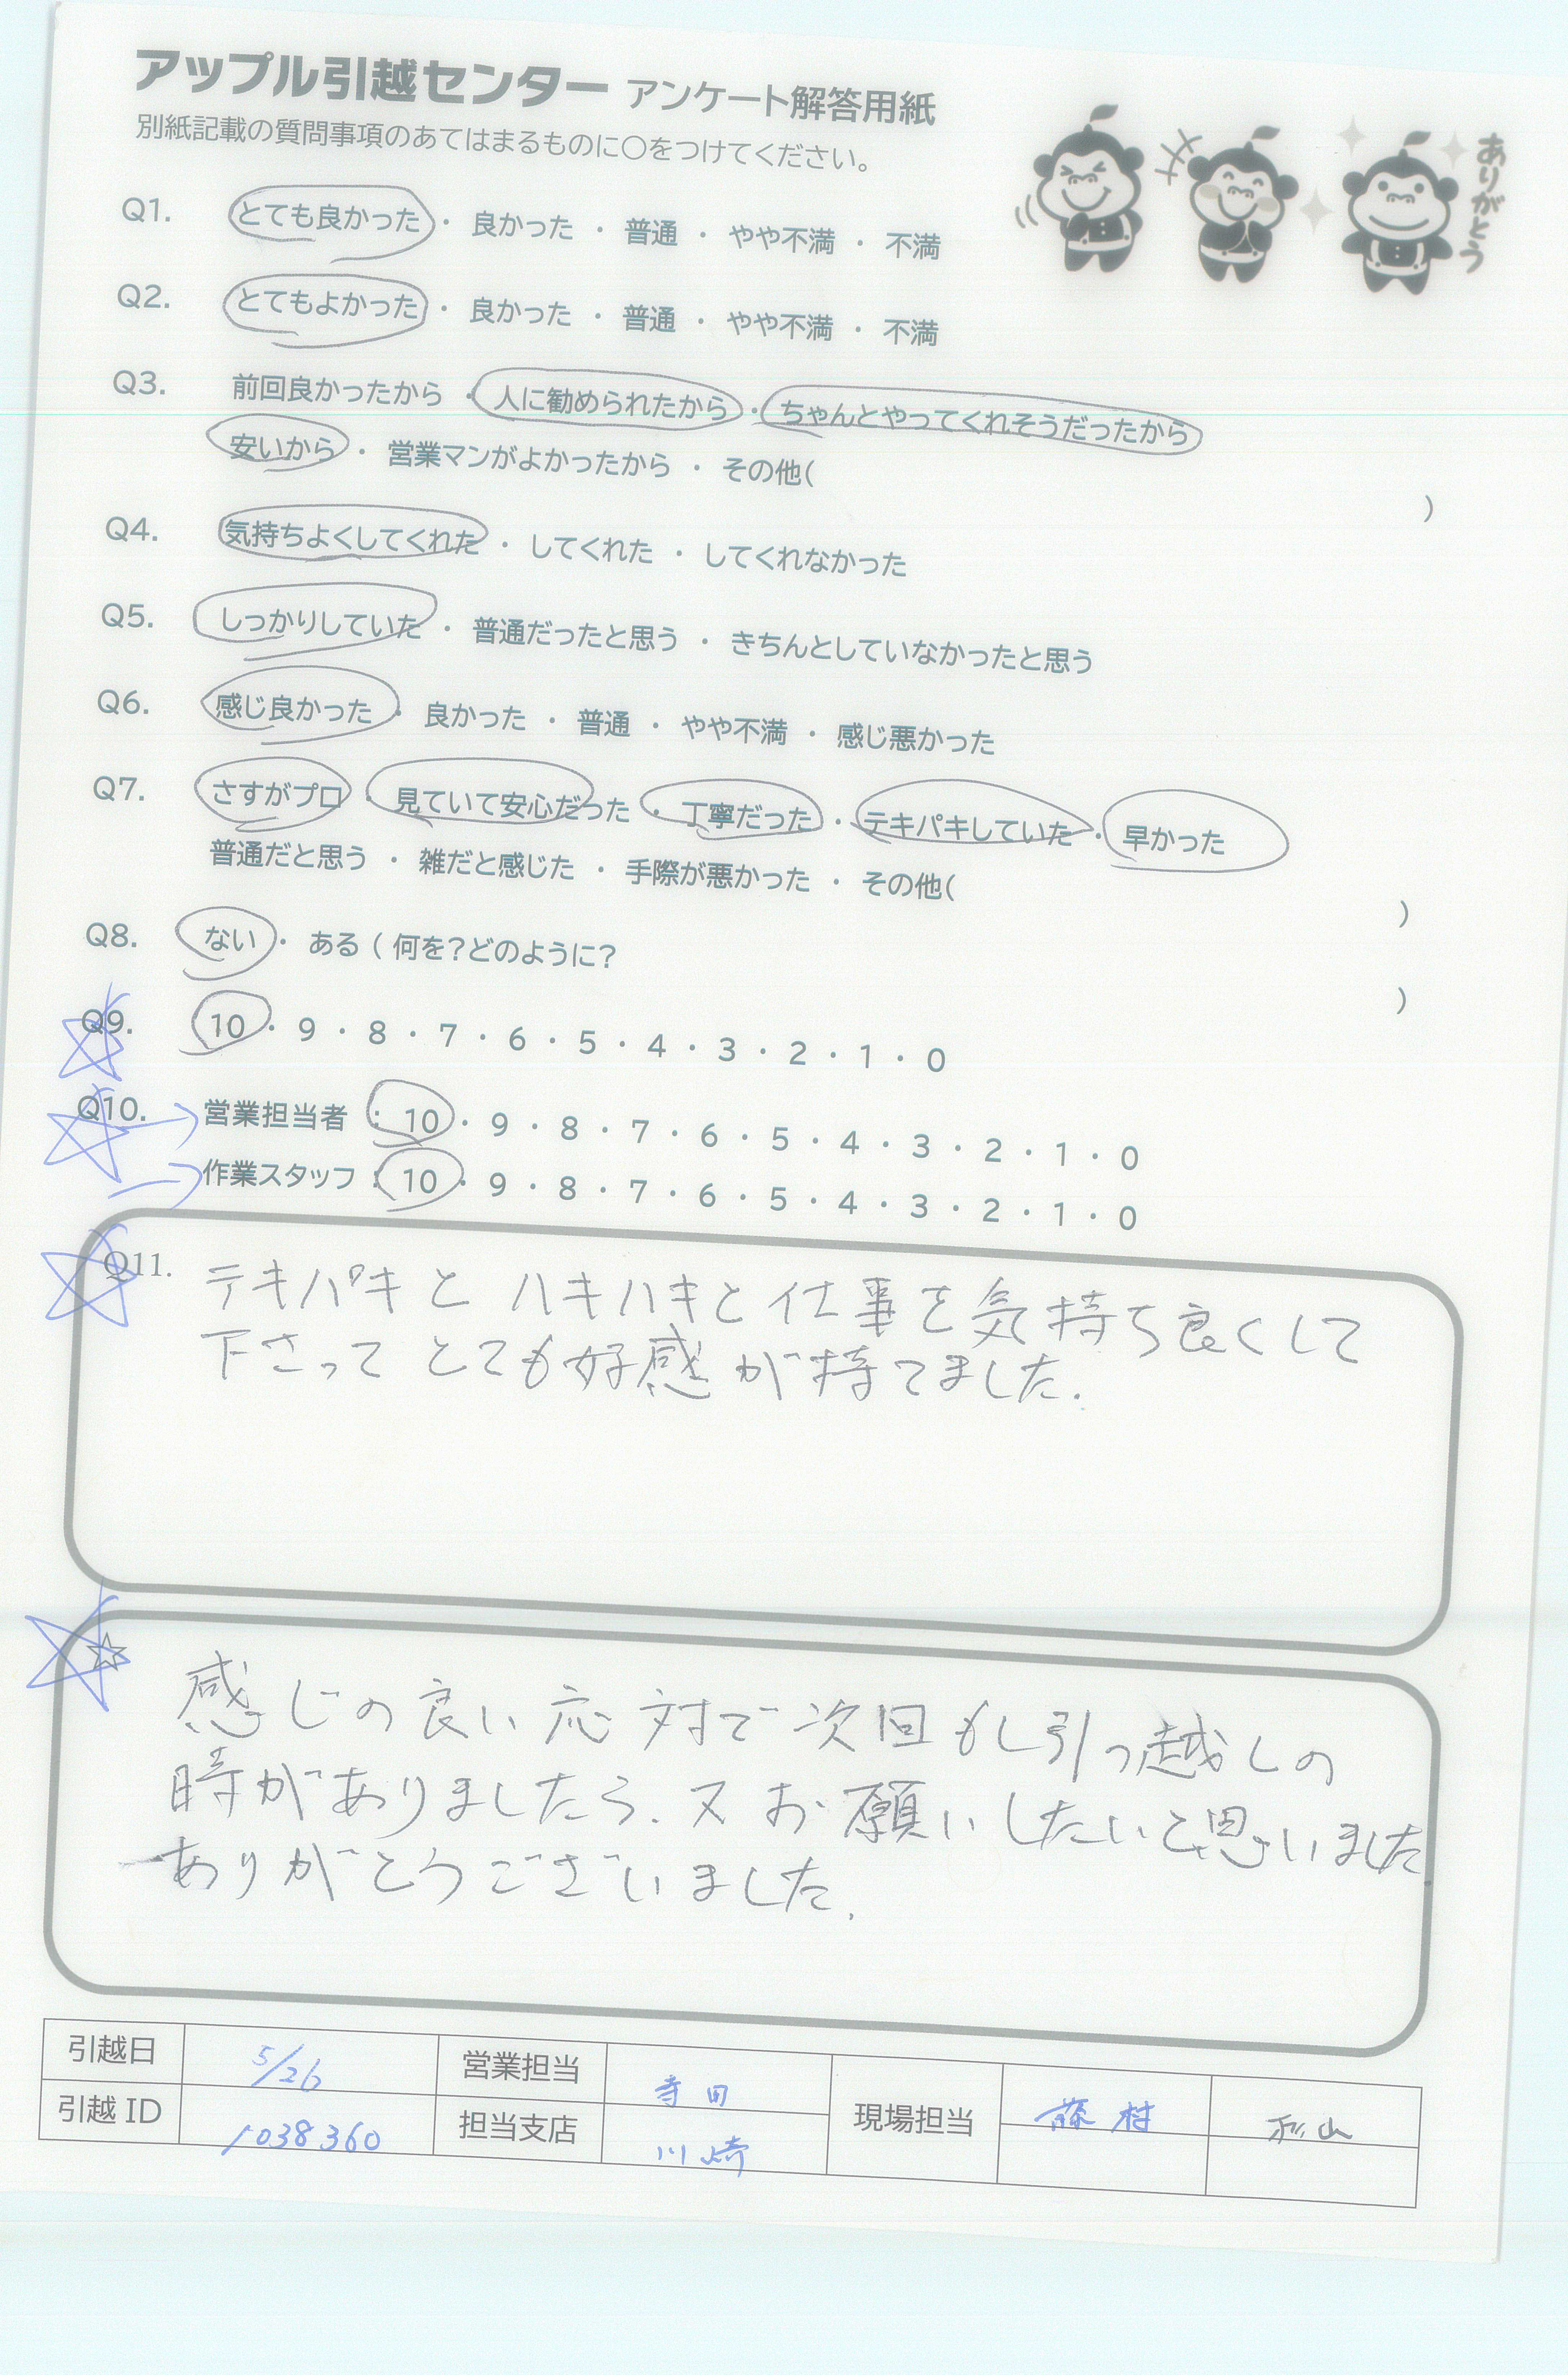 アップル引越センター アンケート解答用紙
別紙記載の質問事項のあてはまるものに○をつけてください。
ありがとう
Q1. とても良かった ・ 良かった ・ 普通 ・ やや不満 ・ 不満
Q2. とてもよかった ・ 良かった ・ 普通 ・ やや不満 ・ 不満
Q3. 前回良かったから ・ 人に勧められたから ・ ちゃんとやってくれそうだったから
安いから ・ 営業マンがよかったから ・ その他( )
Q4. 気持ちよくしてくれた ・ してくれた ・ してくれなかった
Q5. しっかりしていた ・ 普通だったと思う ・ きちんとしていなかったと思う
Q6. 感じ良かった ・ 良かった ・ 普通 ・ やや不満 ・ 感じ悪かった
Q7. さすがプロ ・ 見ていて安心だった ・ 丁寧だった ・ テキパキしていた ・ 早かった
普通だと思う ・ 雑だと感じた ・ 手際が悪かった ・ その他( )
Q8. ない ・ ある ( 何を?どのように? )
Q9. 10 ・ 9 ・ 8 ・ 7 ・ 6 ・ 5 ・ 4 ・ 3 ・ 2 ・ 1 ・ 0
Q10. 営業担当者 : 10 ・ 9 ・ 8 ・ 7 ・ 6 ・ 5 ・ 4 ・ 3 ・ 2 ・ 1 ・ 0
作業スタッフ : 10 ・ 9 ・ 8 ・ 7 ・ 6 ・ 5 ・ 4 ・ 3 ・ 2 ・ 1 ・ 0
Q11. テキパキと ハキハキと 仕事を気持ち良くして
下さって とても好感が持てました.
☆ 感じの良い応対で次回もし引っ越しの
時がありましたら. 又お願いしたいと思いました
ありがとうございました.
引越日 5/26 営業担当 寺田 現場担当 藤村 杉山
引越ID 1038360 担当支店 川崎